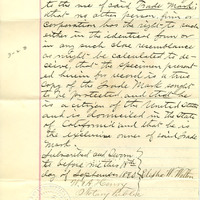 to the use of said Trade Mark;
that no other person firm or
corporation has the right to such
either in the identical form or
in any such close resemblance
as might be calculated to de-
ceive, that the specimen present
ed herein for record is a true
copy of the Trade Mark sought
to be protected, and that he
is a citizen of the United States
and is domiciled in the State
of California and that he is
the exclusive owner of said Trade
Mark.
Subscribed and sworn
to before me this 18th
day of September 188
Notary Public